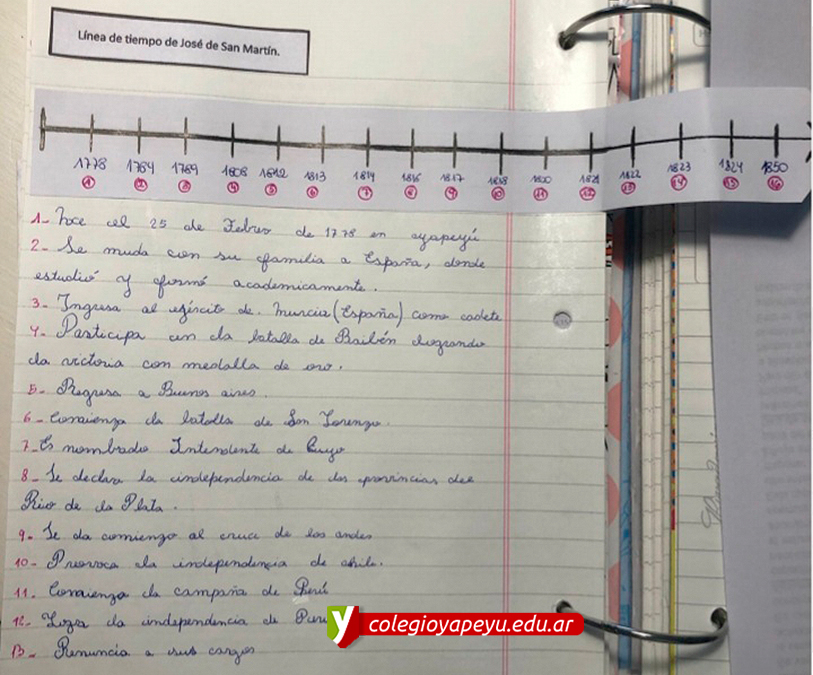 Línea de tiempo de José de San Martín.
1778 1784 1789 1808 1812 1813 1814 1816 1817 1818 1820 1821 1822 1823 1824 1850
1 2 3 4 5 6 7 8 9 10 11 12 13 14 15 16
1- Nace el 25 de Febrero de 1778 en yapeyú
2- Se muda con su familia a España, donde
estudió y formó academicamente.
3- Ingresa al ejército de Murcia (España) como cadete
4- Participa en la batalla de Bailén logrando
la victoria con medalla de oro.
5- Regresa a Buenos aires.
6- Comienza la batalla de San Lorenzo.
7- Es nombrado Intendente de Cuyo
8- Se declara la independencia de las provincias del
Rio de la Plata.
9- Se da comienzo al cruce de los andes
10- Provoca la independencia de chile.
11- Comienza la campaña de Perú
12- Logra la independencia de Perú
13- Renuncia a sus cargos
y colegioyapeyu.edu.ar